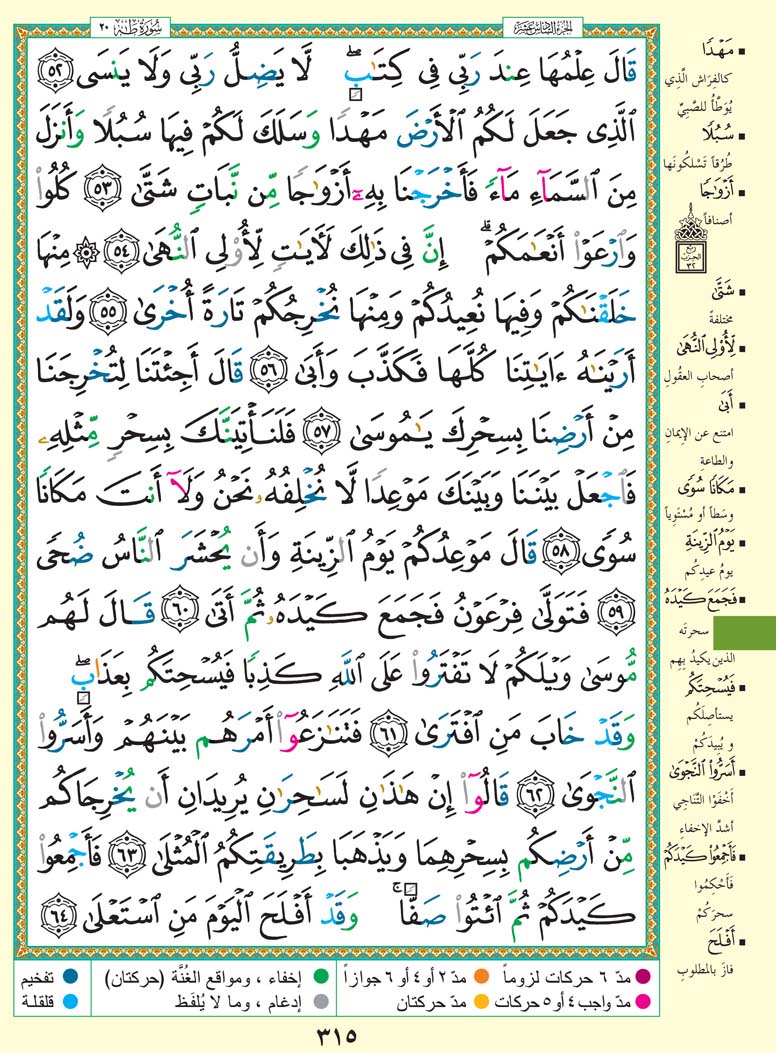 سُورَةُ طه ٢٠
الجُزءُ السَّادِسَ عَشَرَ
قَالَ عِلْمُهَا عِندَ رَبِّى فِى كِتَـٰبٍۖ لَّا يَضِلُّ رَبِّى وَلَا يَنسَى ٥٢
ٱلَّذِى جَعَلَ لَكُمُ ٱلْأَرْضَ مَهْدًا وَسَلَكَ لَكُمْ فِيهَا سُبُلًا وَأَنزَلَ
مِنَ ٱلسَّمَآءِ مَآءً فَأَخْرَجْنَا بِهِۦٓ أَزْوَٰجًا مِّن نَّبَاتٍ شَتَّىٰ ٥٣ كُلُوا۟
وَٱرْعَوْا۟ أَنْعَـٰمَكُمْۗ إِنَّ فِى ذَٰلِكَ لَـَٔايَـٰتٍ لِّأُو۟لِى ٱلنُّهَىٰ ٥٤ ۞ مِنْهَا
خَلَقْنَـٰكُمْ وَفِيهَا نُعِيدُكُمْ وَمِنْهَا نُخْرِجُكُمْ تَارَةً أُخْرَىٰ ٥٥ وَلَقَدْ
أَرَيْنَـٰهُ ءَايَـٰتِنَا كُلَّهَا فَكَذَّبَ وَأَبَىٰ ٥٦ قَالَ أَجِئْتَنَا لِتُخْرِجَنَا
مِنْ أَرْضِنَا بِسِحْرِكَ يَـٰمُوسَىٰ ٥٧ فَلَنَأْتِيَنَّكَ بِسِحْرٍ مِّثْلِهِۦ
فَٱجْعَلْ بَيْنَنَا وَبَيْنَكَ مَوْعِدًا لَّا نُخْلِفُهُۥ نَحْنُ وَلَآ أَنتَ مَكَانًا
سُوًى ٥٨ قَالَ مَوْعِدُكُمْ يَوْمُ ٱلزِّينَةِ وَأَن يُحْشَرَ ٱلنَّاسُ ضُحًى
٥٩ فَتَوَلَّىٰ فِرْعَوْنُ فَجَمَعَ كَيْدَهُۥ ثُمَّ أَتَىٰ ٦٠ قَالَ لَهُم
مُّوسَىٰ وَيْلَكُمْ لَا تَفْتَرُوا۟ عَلَى ٱللَّهِ كَذِبًا فَيُسْحِتَكُم بِعَذَابٍۖ
وَقَدْ خَابَ مَنِ ٱفْتَرَىٰ ٦١ فَتَنَـٰزَعُوٓا۟ أَمْرَهُم بَيْنَهُمْ وَأَسَرُّوا۟
ٱلنَّجْوَىٰ ٦٢ قَالُوٓا۟ إِنْ هَـٰذَٰنِ لَسَـٰحِرَٰنِ يُرِيدَانِ أَن يُخْرِجَاكُم
مِّنْ أَرْضِكُم بِسِحْرِهِمَا وَيَذْهَبَا بِطَرِيقَتِكُمُ ٱلْمُثْلَىٰ ٦٣ فَأَجْمِعُوا۟
كَيْدَكُمْ ثُمَّ ٱئْتُوا۟ صَفًّاۚ وَقَدْ أَفْلَحَ ٱلْيَوْمَ مَنِ ٱسْتَعْلَىٰ ٦٤
▪ مَهْدًا
كالفِرَاش الَّذِي
يُوَطَّأُ للصَّبِيِّ
▪ سُبُلًا
طُرُقاً تَسْلُكُونَها
▪ أَزْوَٰجًا
أصنافاً
ربع
الحزب
٣٢
▪ شَتَّىٰ
مختلفةً
▪ لِّأُو۟لِى ٱلنُّهَىٰ
أصحابِ العقُولِ
▪ أَبَىٰ
امتنع عن الإيمانِ
والطاعةِ
▪ مَكَانًا سُوًى
وَسَطاً أو مُسْتَوِياً
▪ يَوْمُ ٱلزِّينَةِ
يومُ عيدِكُم
▪ فَجَمَعَ كَيْدَهُ
سحرتَه
الذين يَكِيدُ بِهِم
▪ فَيُسْحِتَكُم
يستأصِلَكُم
و يُبِيدَكُمْ
▪ أَسَرُّوا۟ ٱلنَّجْوَىٰ
أخْفَوْا التَّنَاجِي
أشدَّ الإخفاءِ
▪ فَأَجْمِعُوا۟ كَيْدَكُمْ
فَأَحْكِمُوا
سحرَكُمْ
▪ أَفْلَحَ
فازَ بالمطلوبِ
مدّ ٦ حركات لزوماً
مدّ ٢ أو ٤ أو ٦ جوازاً
إخفاء ، ومواقع الغُنَّة (حركتان)
تفخيم
مدّ واجب ٤ أو ٥ حركات
مدّ حركتان
إدغام ، وما لا يُلفَظ
قلقلة
٣١٥